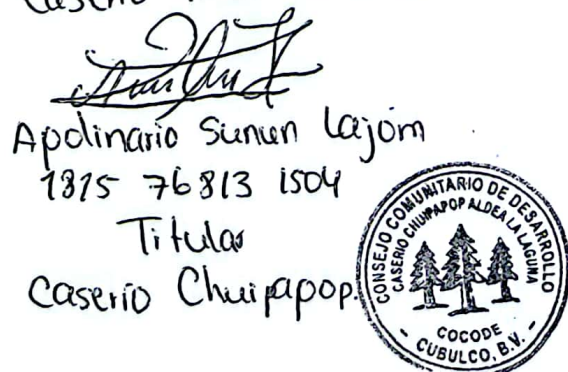 Caserio
Apolinario Sunun Lajom
1815 76813 1504
Titular
Caserio Chuipapop.
CONSEJO COMUNITARIO DE DESARROLLO
CASERIO CHUIPAPOP ALDEA LA LAGUNA
COCODE
- CUBULCO, B.V. -